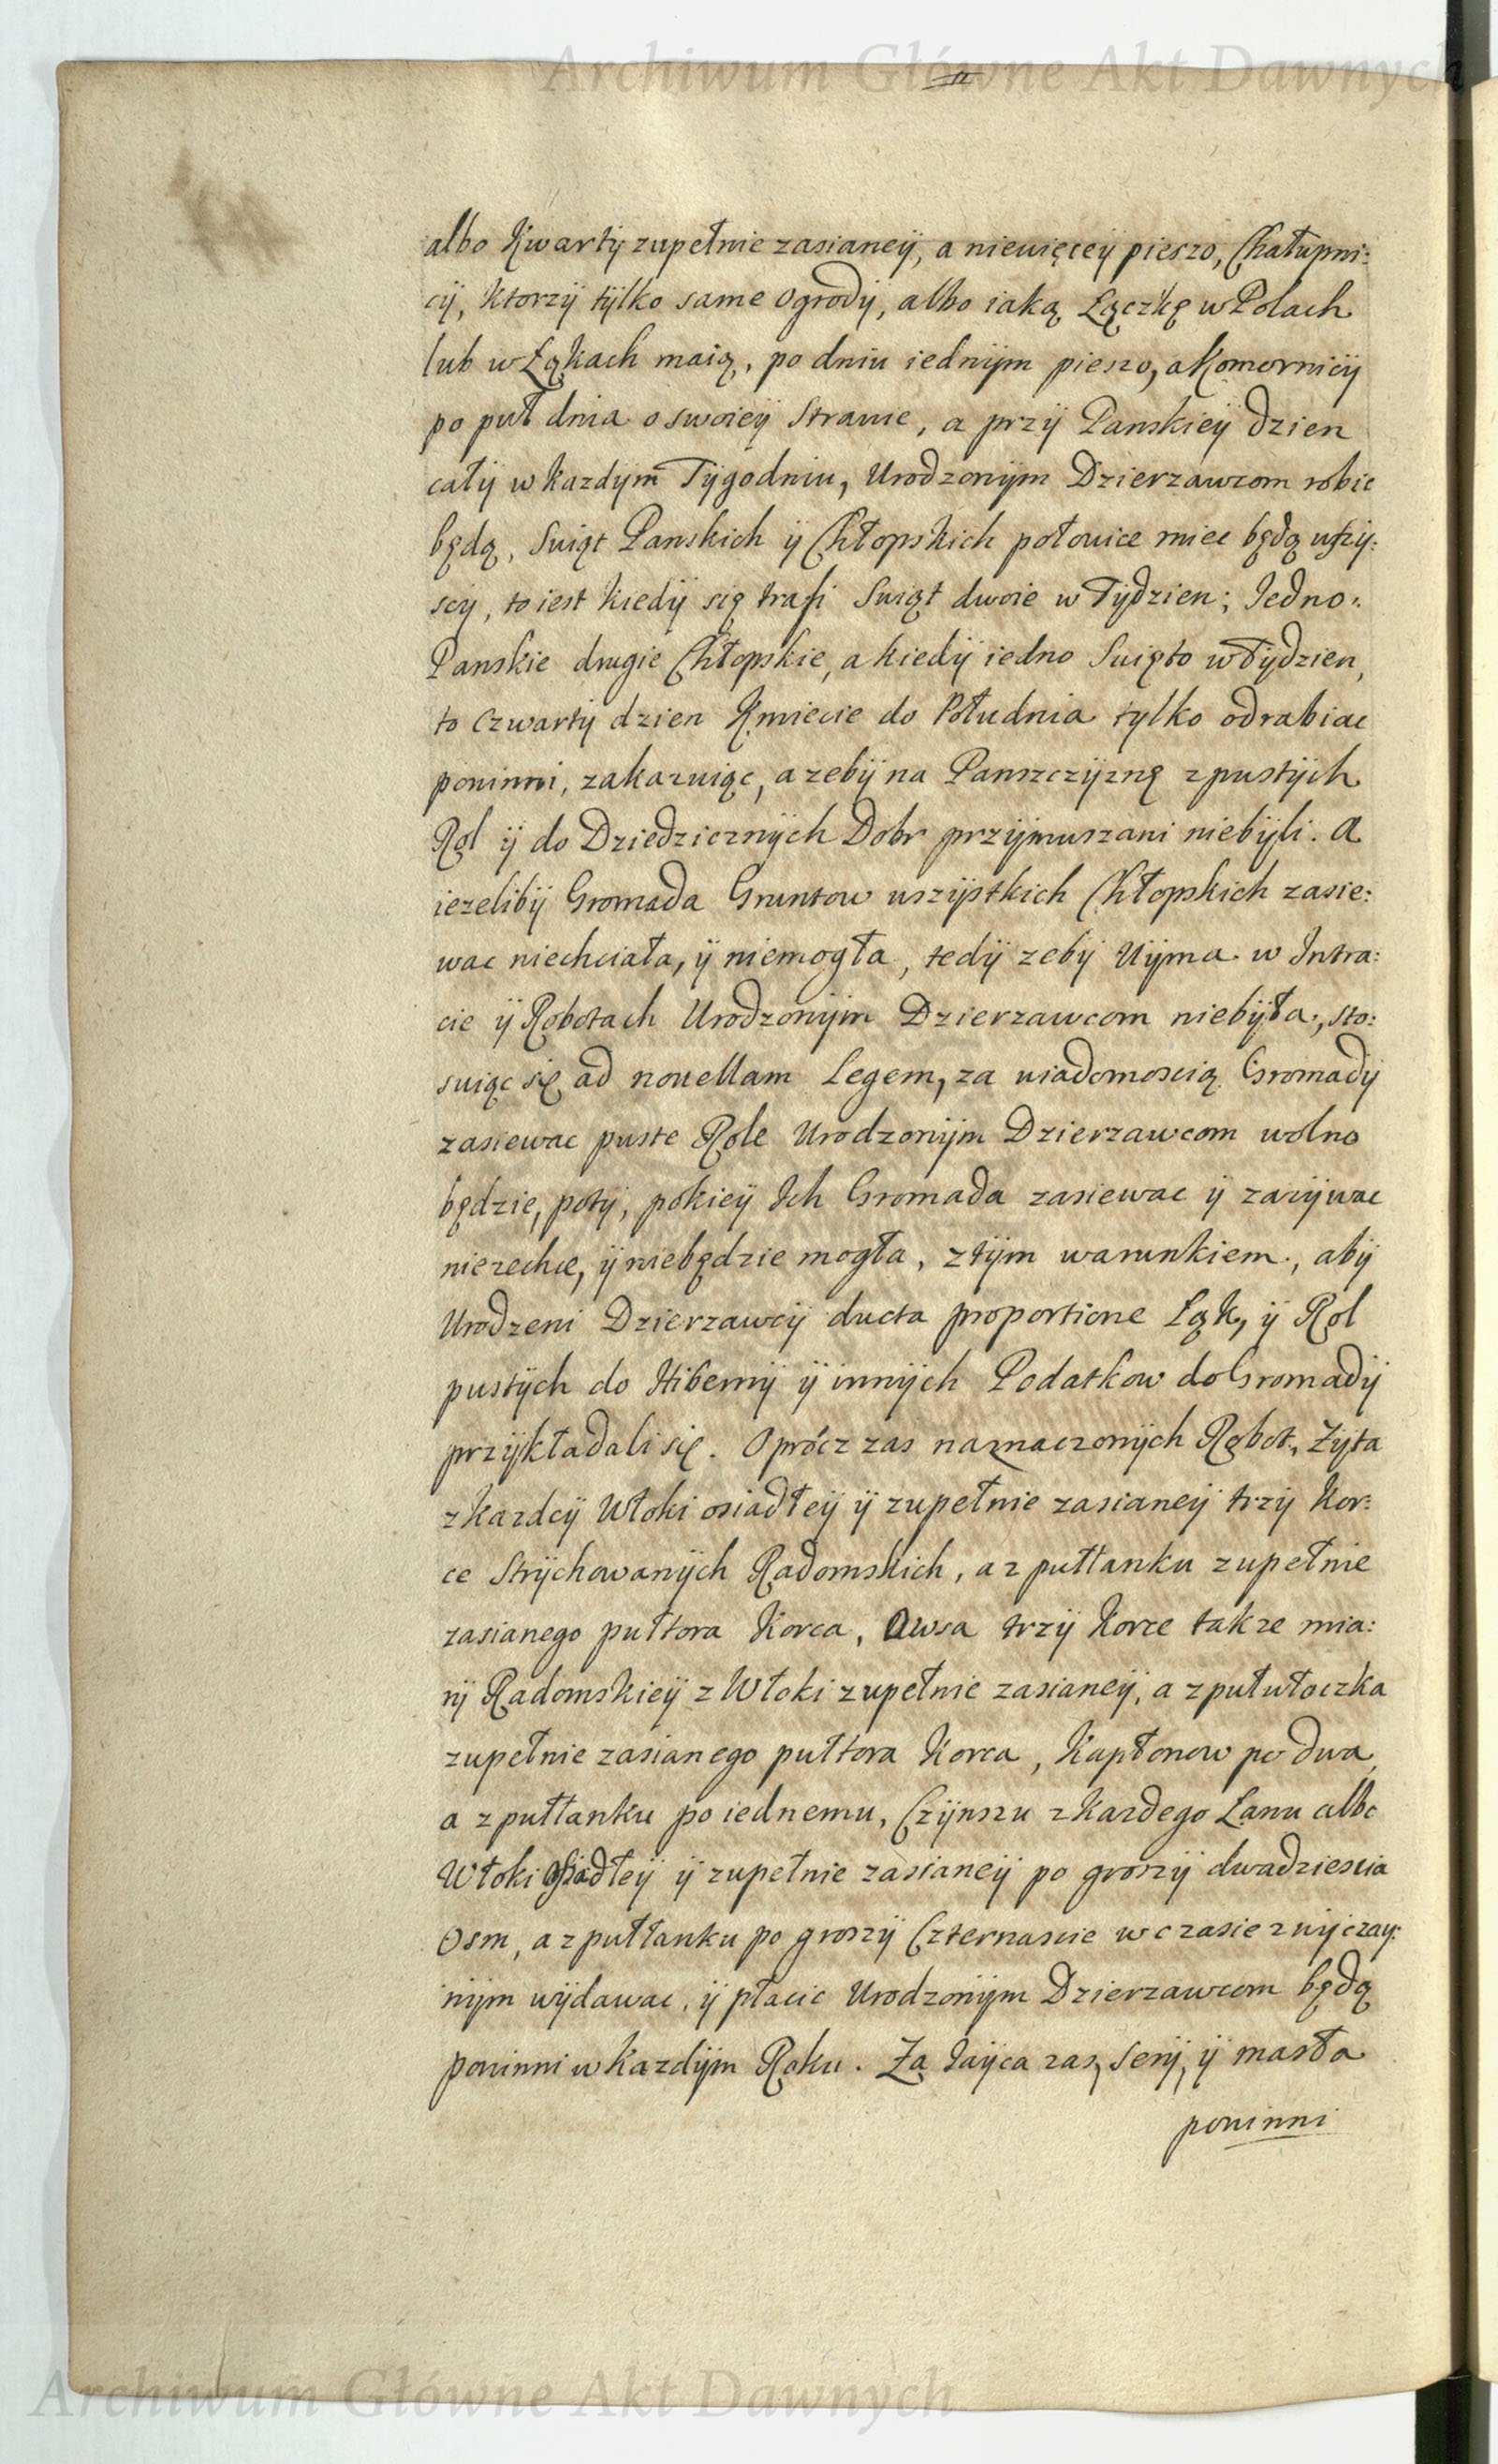 Archiwum Główne Akt Dawnych
albo Kwartÿ zupełnie zasianeÿ, a niewięceÿ pieszo, Chałupni:
cÿ, ktorzÿ tÿlko same Ogrodÿ, albo iaką Łączkę w Polach
lub w Łąkach maią, po dniu iednÿm pieszo, a Komornicÿ
po puł dnia o swoieÿ Strawie, a przÿ Panskieÿ dzien
całÿ w kazdym Tÿgodniu, Urodzonÿm Dzierzawcom robic
będą, Swiąt Panskich ÿ Chłopskich połowice miec będą wszÿ:
scy, to iest kiedÿ się trafi Swiąt dwoie w Tÿdzien; Jedno
Panskie drugie Chłopskie, a kiedÿ iedno Swięto w Tÿdzien,
to Czwartÿ dzien Kmiecie do Południa tylko odrabiac
powinni, zakazuiąc, azebÿ na Panszczÿznę z pustÿch
Rol ÿ do Dziedzicznÿch Dobr przÿmuszani niebÿli. A
iezelibÿ Gromada Gruntow wszÿstkich Chłopskich zasie:
wac niechciała, ÿ niemogła, tedÿ zebÿ Uÿma w Intra:
cie ÿ Robotach Urodzonÿm Dzierzawcom niebÿła, sto:
suiąc się ad novellam Legem, za wiadomoscią Gromadÿ
zasiewac puste Role Urodzonÿm Dzierzawcom wolno
będzie, potÿ, pokieÿ Ich Gromada zasiewac ÿ zazÿwac
niezechce, ÿ niebędzie mogła, z tÿm warunkiem, abÿ
Urodzeni Dzierzawcÿ ducta proportione Łąk, ÿ Rol
pustÿch do Hibernÿ ÿ innÿch Podatkow do Gromadÿ
przÿkładali się. Oprócz zas naznaczonÿch Robot, Zÿta
z kazdeÿ Włoki osiadłeÿ ÿ zupełnie zasianeÿ trzÿ Kor:
ce Strÿchowanÿch Radomskich, a z pułłanku zupełnie
zasianego pułtora Korca, Owsa trzÿ Korce takze mia:
rÿ Radomskieÿ z Włoki zupełnie zasianeÿ, a z pułwłoczka
zupełnie zasianego pułtora Korca, Kapłonow po dwa,
a z pułłanku po iednemu, Czÿnszu z kazdego Łanu albo
Włoki Osiadłeÿ ÿ zupełnie zasianeÿ po groszÿ dwadziescia
Osm, a z pułłanku po groszÿ Czternascie w czasie zwÿczaÿ:
nÿm wÿdawac, ÿ płacic Urodzonÿm Dzierzawcom będą
powinni w kazdÿm Roku. Za Jaÿca zas, Serÿ, ÿ masła
powinni
Archiwum Główne Akt Dawnych